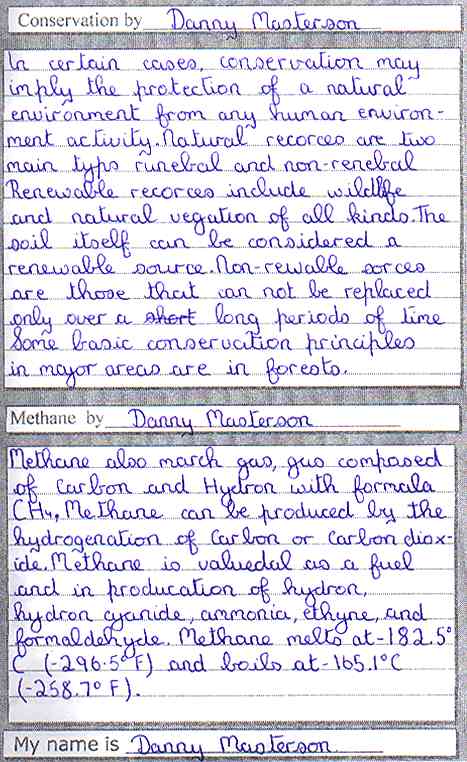 Conservation by Danny Masterson
In certain cases, conservation may
imply the protection of a natural
environment from any human environ-
ment activity. Natural recorces are two
main typs runebal and non-renebal
Renewable recorces include wildlife
and natural vegation of all kinds. The
soil itself can be considered a
renewable source. Non-rewable sorces
are those that can not be replaced
only over a short long periods of time
Some basic conservation principles
in major areas are in forests.
Methane by Danny Masterson
Methane also march gas, gas composed
of Carbon and Hydron with formala
CH₄, Methane can be produced by the
hydrogenation of Carbon or Carbon diox-
ide. Methane is valuedal as a fuel
and in producation of hydron,
hydron cyanide, ammonia, ethyne, and
formaldehyde. Methane melts at -182.5°
C (-296.5°F) and boils at -165.1°C
(-258.7° F).
My name is Danny Masterson.